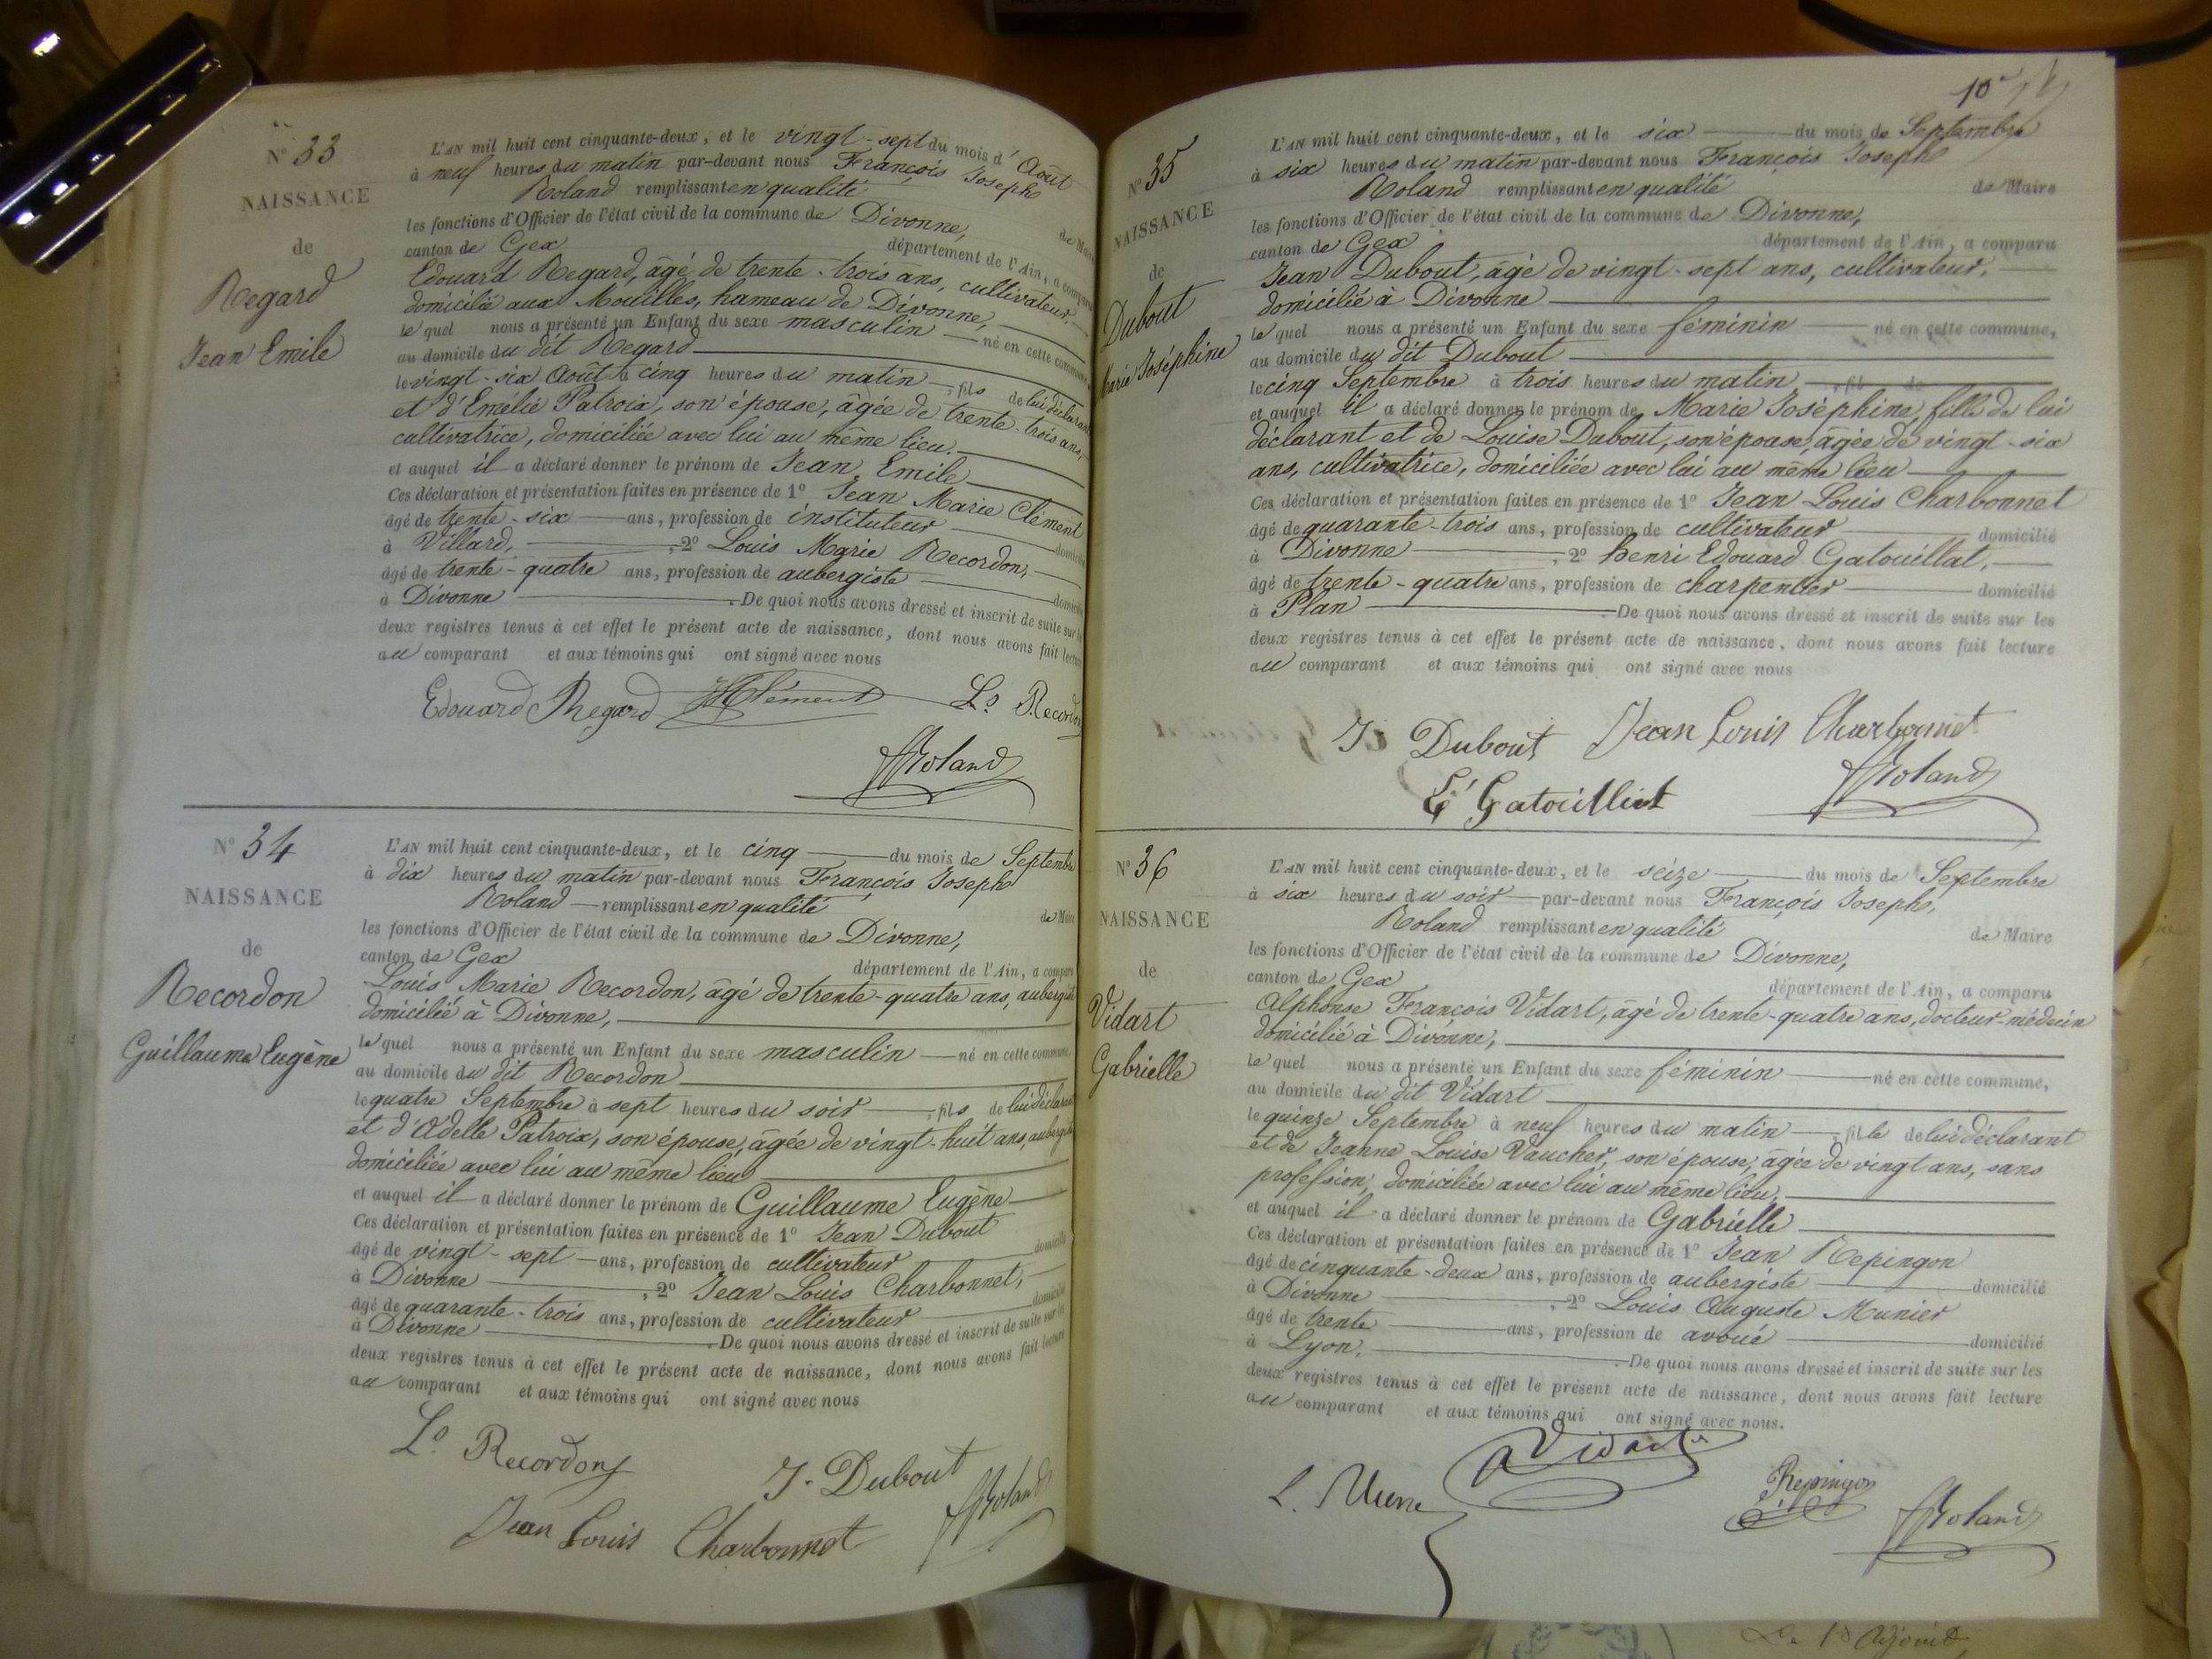 N° 33
NAISSANCE
de
Regard
Jean Emile
L'AN mil huit cent cinquante-deux, et le vingt-sept du mois d'Août
à neuf heures du matin par-devant nous François Joseph
Roland remplissant en qualité de
les fonctions d'Officier de l'état civil de la commune de Divonne,
canton de Gex département de l'Ain, a comparu
Edouard Regard, âgé de trente-trois ans, cultivateur,
domicilié aux Mouilles, hameau de Divonne,
lequel nous a présenté un Enfant du sexe masculin né en cette commune
au domicile du dit Regard
le vingt-six Août à cinq heures du matin, fils de lui déclarant
et d'Emélie Patroix, son épouse, âgée de trente-trois ans,
cultivatrice, domiciliée avec lui au même lieu.
et auquel il a déclaré donner le prénom de Jean Emile
Ces déclaration et présentation faites en présence de 1° Jean Marie Clément
âgé de trente-six ans, profession de instituteur domicilié
à Villard, 2° Louis Marie Recordon,
âgé de trente-quatre ans, profession de aubergiste domicilié
à Divonne. De quoi nous avons dressé et inscrit de suite sur les
deux registres tenus à cet effet le présent acte de naissance, dont nous avons fait lecture
au comparant et aux témoins qui ont signé avec nous
Edouard Regard Clément Ls Recordon
Roland
N° 34
NAISSANCE
de
Recordon
Guillaume Eugène
L'AN mil huit cent cinquante-deux, et le cinq du mois de Septembre
à dix heures du matin par-devant nous François Joseph
Roland remplissant en qualité de Maire
les fonctions d'Officier de l'état civil de la commune de Divonne,
canton de Gex département de l'Ain, a comparu
Louis Marie Recordon, âgé de trente-quatre ans, aubergiste
domicilié à Divonne,
lequel nous a présenté un Enfant du sexe masculin né en cette commune
au domicile du dit Recordon
le quatre Septembre à sept heures du soir, fils de lui déclarant
et d'Adelle Patroix, son épouse, âgée de vingt-huit ans, aubergiste
domiciliée avec lui au même lieu
et auquel il a déclaré donner le prénom de Guillaume Eugène
Ces déclaration et présentation faites en présence de 1° Jean Dubout
âgé de vingt-sept ans, profession de cultivateur domicilié
à Divonne, 2° Jean Louis Charbonnet,
âgé de quarante-trois ans, profession de cultivateur domicilié
à Divonne. De quoi nous avons dressé et inscrit de suite sur les
deux registres tenus à cet effet le présent acte de naissance, dont nous avons fait lecture
au comparant et aux témoins qui ont signé avec nous
Ls Recordon J. Dubout
Jean Louis Charbonnet Roland
10
N° 35
NAISSANCE
de
Dubout
Marie Joséphine
L'AN mil huit cent cinquante-deux, et le six du mois de Septembre
à six heures du matin par-devant nous François Joseph
Roland remplissant en qualité de Maire
les fonctions d'Officier de l'état civil de la commune de Divonne,
canton de Gex département de l'Ain, a comparu
Jean Dubout, âgé de vingt-sept ans, cultivateur,
domicilié à Divonne
lequel nous a présenté un Enfant du sexe féminin né en cette commune,
au domicile du dit Dubout
le cinq Septembre à trois heures du matin, fil de
et auquel il a déclaré donner le prénom de Marie Joséphine, fille de lui
déclarant et de Louise Dubout, son épouse, âgée de vingt-six
ans, cultivatrice, domiciliée avec lui au même lieu
Ces déclaration et présentation faites en présence de 1° Jean-Louis Charbonnet
âgé de quarante-trois ans, profession de cultivateur domicilié
à Divonne, 2° Henri Edouard Gatouillat,
âgé de trente-quatre ans, profession de charpentier domicilié
à Plan. De quoi nous avons dressé et inscrit de suite sur les
deux registres tenus à cet effet le présent acte de naissance, dont nous avons fait lecture
au comparant et aux témoins qui ont signé avec nous
J. Dubout Jean Louis Charbonnet
Gatouilliat Roland
N° 36
NAISSANCE
de
Vidart
Gabrielle
L'AN mil huit cent cinquante-deux, et le seize du mois de Septembre
à six heures du soir par-devant nous François Joseph,
Roland remplissant en qualité de Maire
les fonctions d'Officier de l'état civil de la commune de Divonne,
canton de Gex département de l'Ain, a comparu
Alphonse François Vidart, âgé de trente-quatre ans, docteur-médecin
domicilié à Divonne,
lequel nous a présenté un Enfant du sexe féminin né en cette commune,
au domicile du dit Vidart
le quinze Septembre à neuf heures du matin, fille de lui déclarant
et de Jeanne Louise Vaucher, son épouse, âgée de vingt ans, sans
profession, domiciliée avec lui au même lieu,
et auquel il a déclaré donner le prénom de Gabrielle
Ces déclaration et présentation faites en présence de 1° Jean Repingon
âgé de cinquante-deux ans, profession de aubergiste domicilié
à Divonne, 2° Louis Auguste Munier
âgé de trente ans, profession de avoué domicilié
à Lyon. De quoi nous avons dressé et inscrit de suite sur les
deux registres tenus à cet effet le présent acte de naissance, dont nous avons fait lecture
au comparant et aux témoins qui ont signé avec nous.
A Vidart
L. Mune Repingon Roland